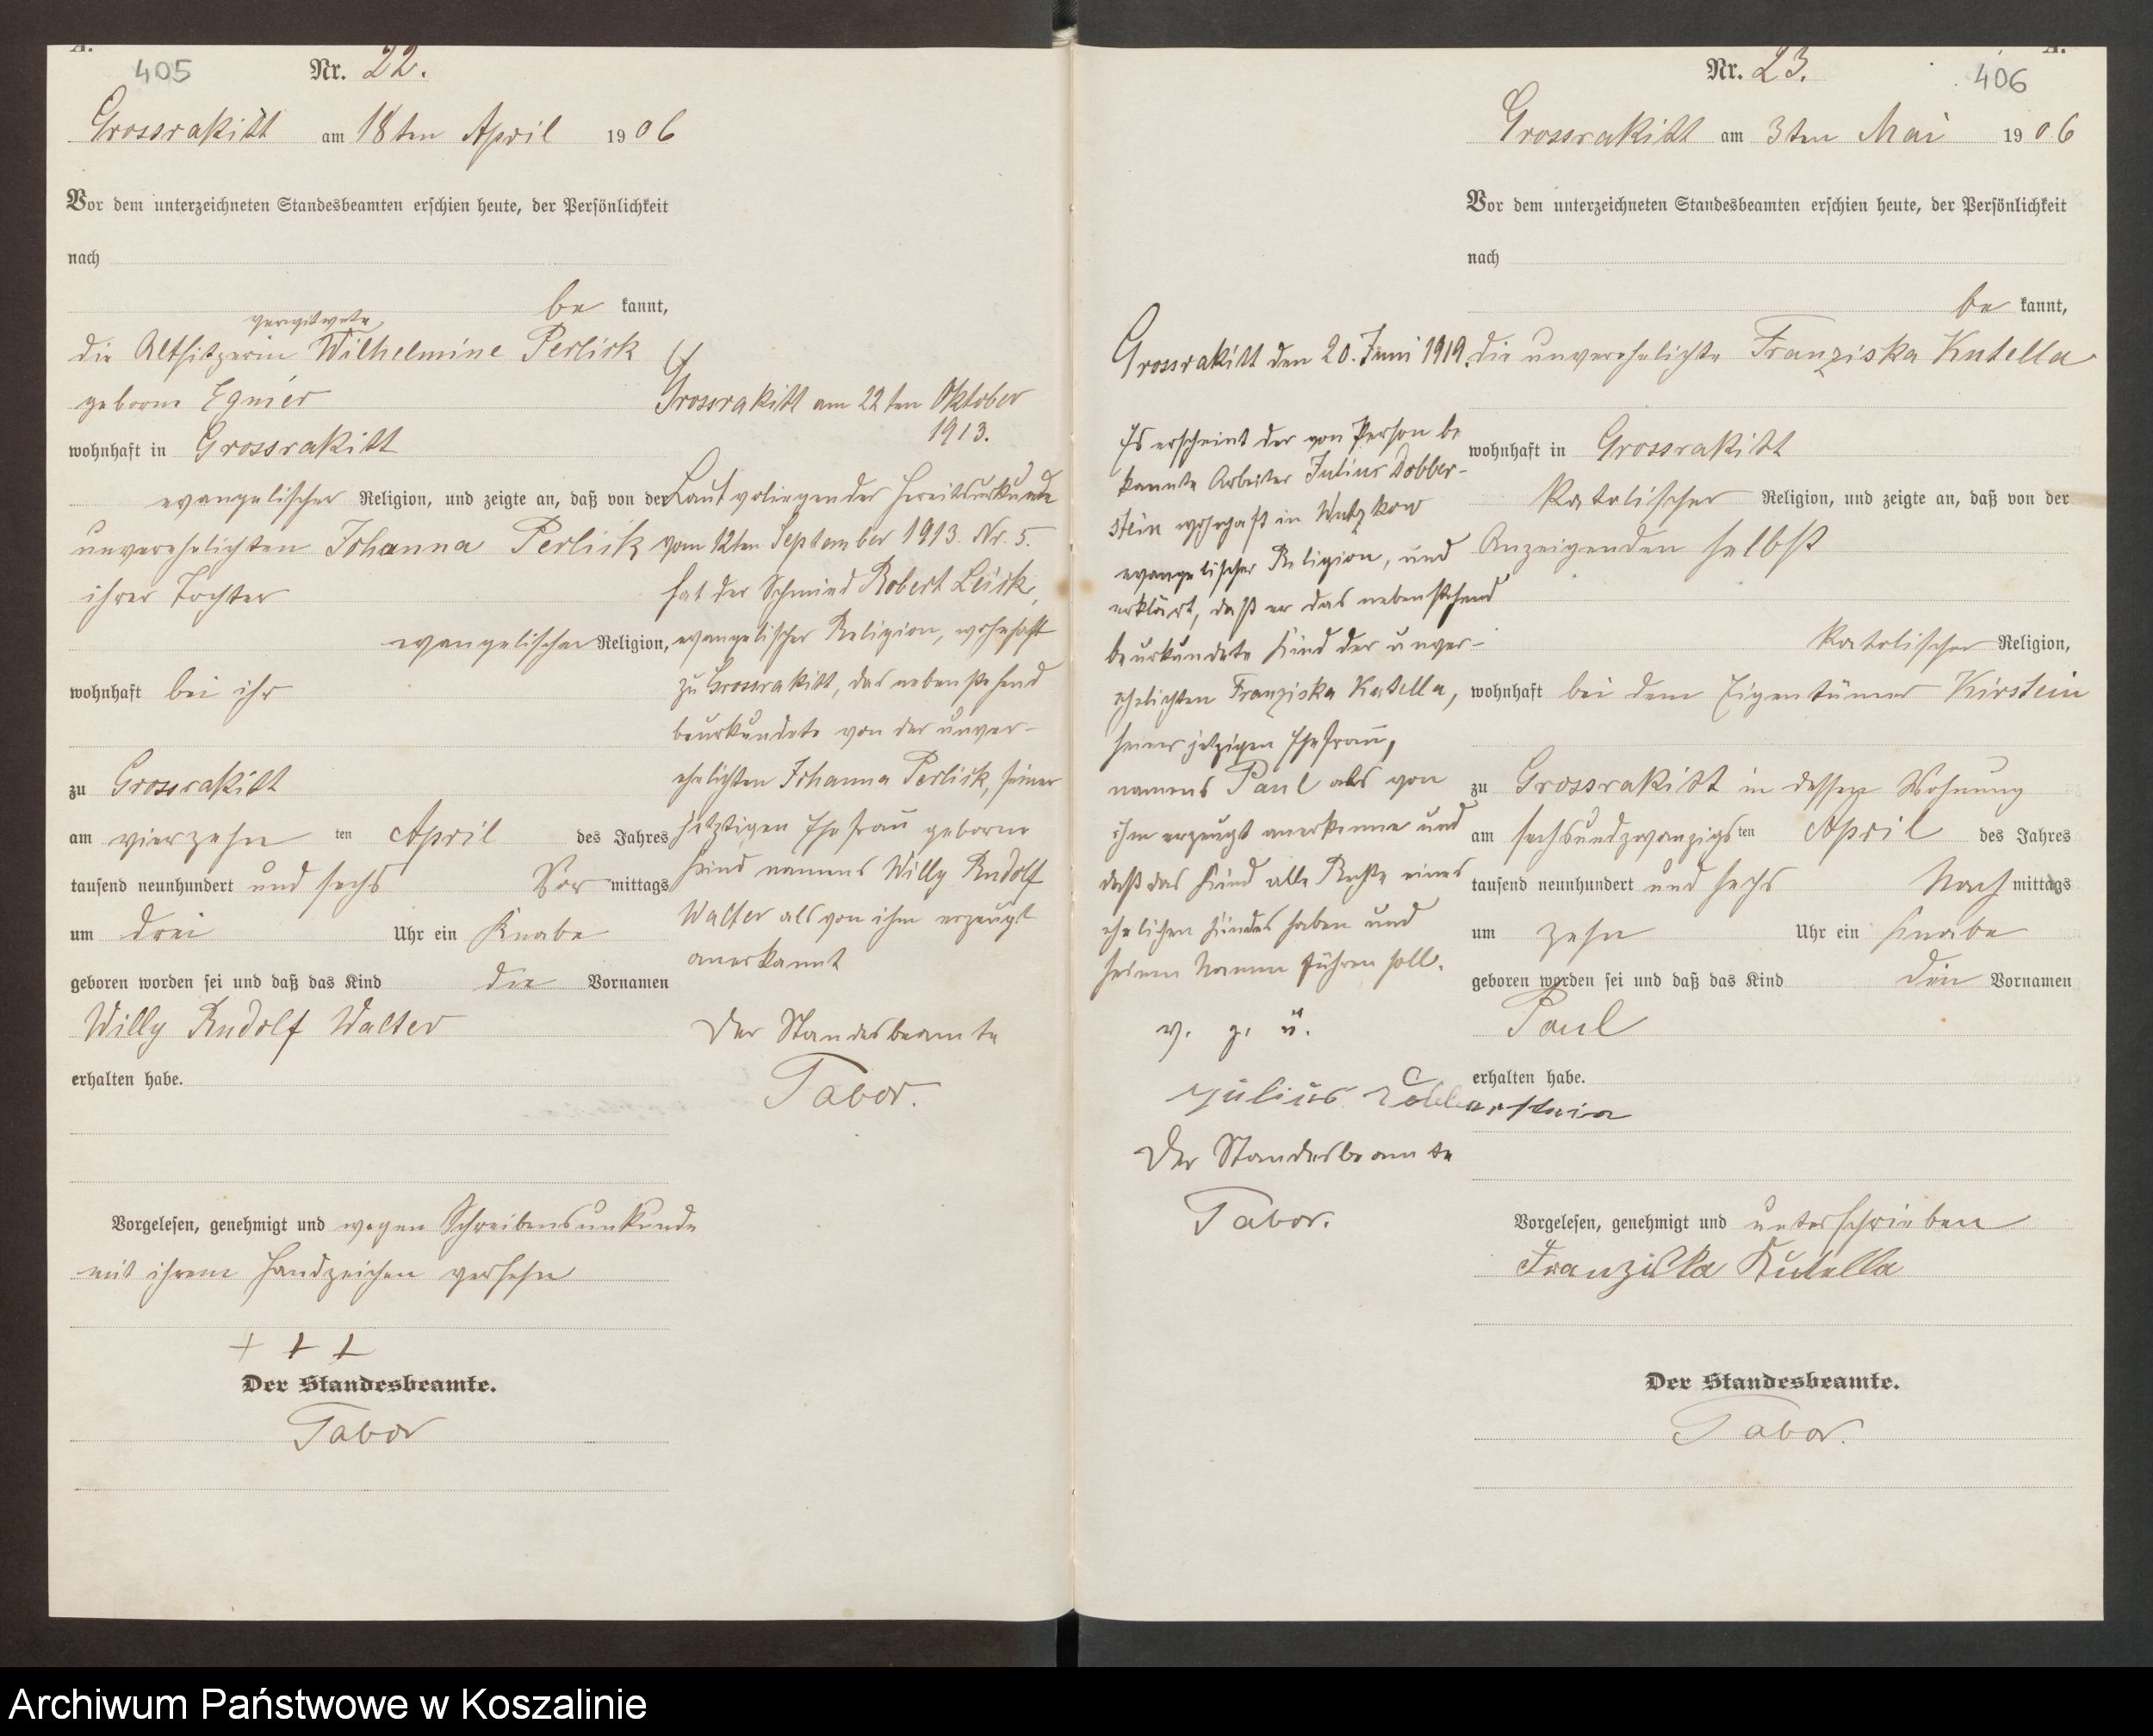 A.
405
Nr. 22.
Grossrakitt am 18ten April 1906
Vor dem unterzeichneten Standesbeamten erschien heute, der Persönlichkeit
nach
be kannt,
verwitwete
die Altsitzerin Wilhelmine Perlick
geborne
wohnhaft in Grossrakitt
evangelischer Religion, und zeigte an, daß von der
unverehelichten Johanna Perlick
ihrer Tochter
evangelischer Religion,
wohnhaft bei ihr
zu Grossrakitt
am vierzehn ten April des Jahres
tausend neunhundert und sechs Vor mittags
um drei Uhr ein Knabe
geboren worden sei und daß das Kind die Vornamen
Willy Rudolf Walter
erhalten habe.
Vorgelesen, genehmigt und wegen Schreibensunkunde
mit ihrem Handzeichen versehn
+ + +
Der Standesbeamte.
Tabor
Grossrakitt am 22ten Oktober
1913.
Laut vorliegender Heiratsurkunde
vom 12ten September 1913 Nr. 5.
hat der Schmied Robert
evangelischer Religion, wohnhaft
zu Grossrakitt, das nebenstehend
beurkundete von der unver-
ehelichten Johanna Perlick, seiner
jetztigen Ehefrau geborne
Kind namens Willy Rudolf
Walter als von ihm erzeugt
anerkannt
Der Standesbeamte
Tabor.
A.
Nr. 23.
406
Grossrakitt am 3ten Mai 1906
Vor dem unterzeichneten Standesbeamten erschien heute, der Persönlichkeit
nach
be kannt,
die unverehelichte Franziska Kutella
wohnhaft in Grossrakitt
Katolischer Religion, und zeigte an, daß von der
Anzeigenden selbst
Katolischer Religion,
wohnhaft bei dem Eigentümer Kirstein
zu Grossrakitt in dessen Wohnung
am sechsundzwanzigs ten April des Jahres
tausend neunhundert und sechs Nach mittags
um zehn Uhr ein Knabe
geboren worden sei und daß das Kind den Vornamen
Paul
erhalten habe.
Vorgelesen, genehmigt und unterschrieben
Franziska Kutella
Der Standesbeamte.
Tabor.
Grossrakitt den 20. Juni 1919.
Es erscheint der von Person be
kannte Arbeiter Julius Dobber-
stein wohnhaft in Wutzkow
evangelischer Religion, und
erklärt, daß er das nebenstehend
beurkundete Kind der unver-
ehelichten Franziska Kutella,
seiner jetzigen Ehefrau,
namens Paul als von
ihm erzeugt anerkenne und
daß das Kind alle Rechte eines
ehelichen Kindes haben und
seinen Namen führen soll.
v. g. u.
Julius Dobberstein
Der Standesbeamte
Tabor.
Archiwum Państwowe w Koszalinie